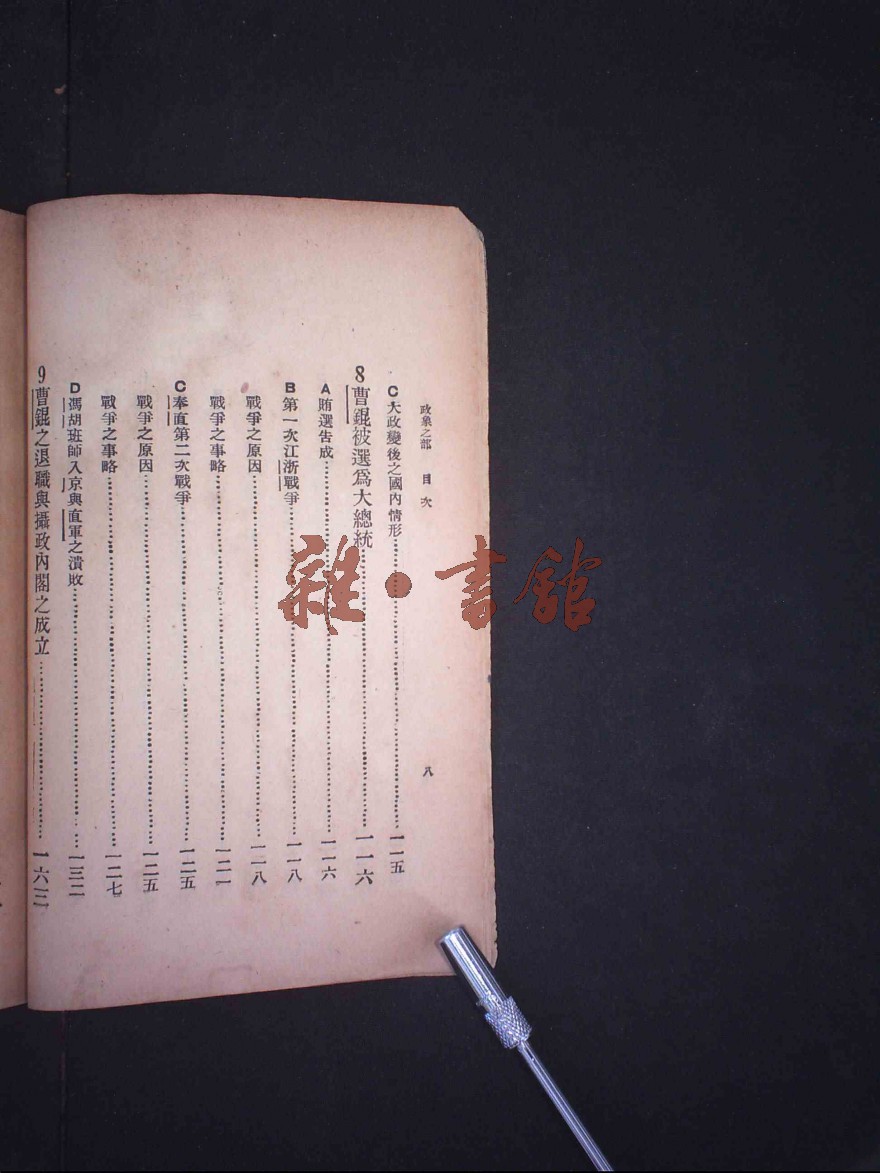 政象之部　目次　八
C大政變後之國內情形…………一一五
8曹錕被選爲大總統…………一一六
A賄選告成…………一一六
B第一次江浙戰爭…………一一八
戰爭之原因…………一一八
戰爭之事略…………一二一
C奉直第二次戰爭…………一二五
戰爭之原因…………一二五
戰爭之事略…………一二七
D馮胡班師入京與直軍之潰敗…………一三二
9曹錕之退職與攝政內閣之成立…………一六三
雜·書館